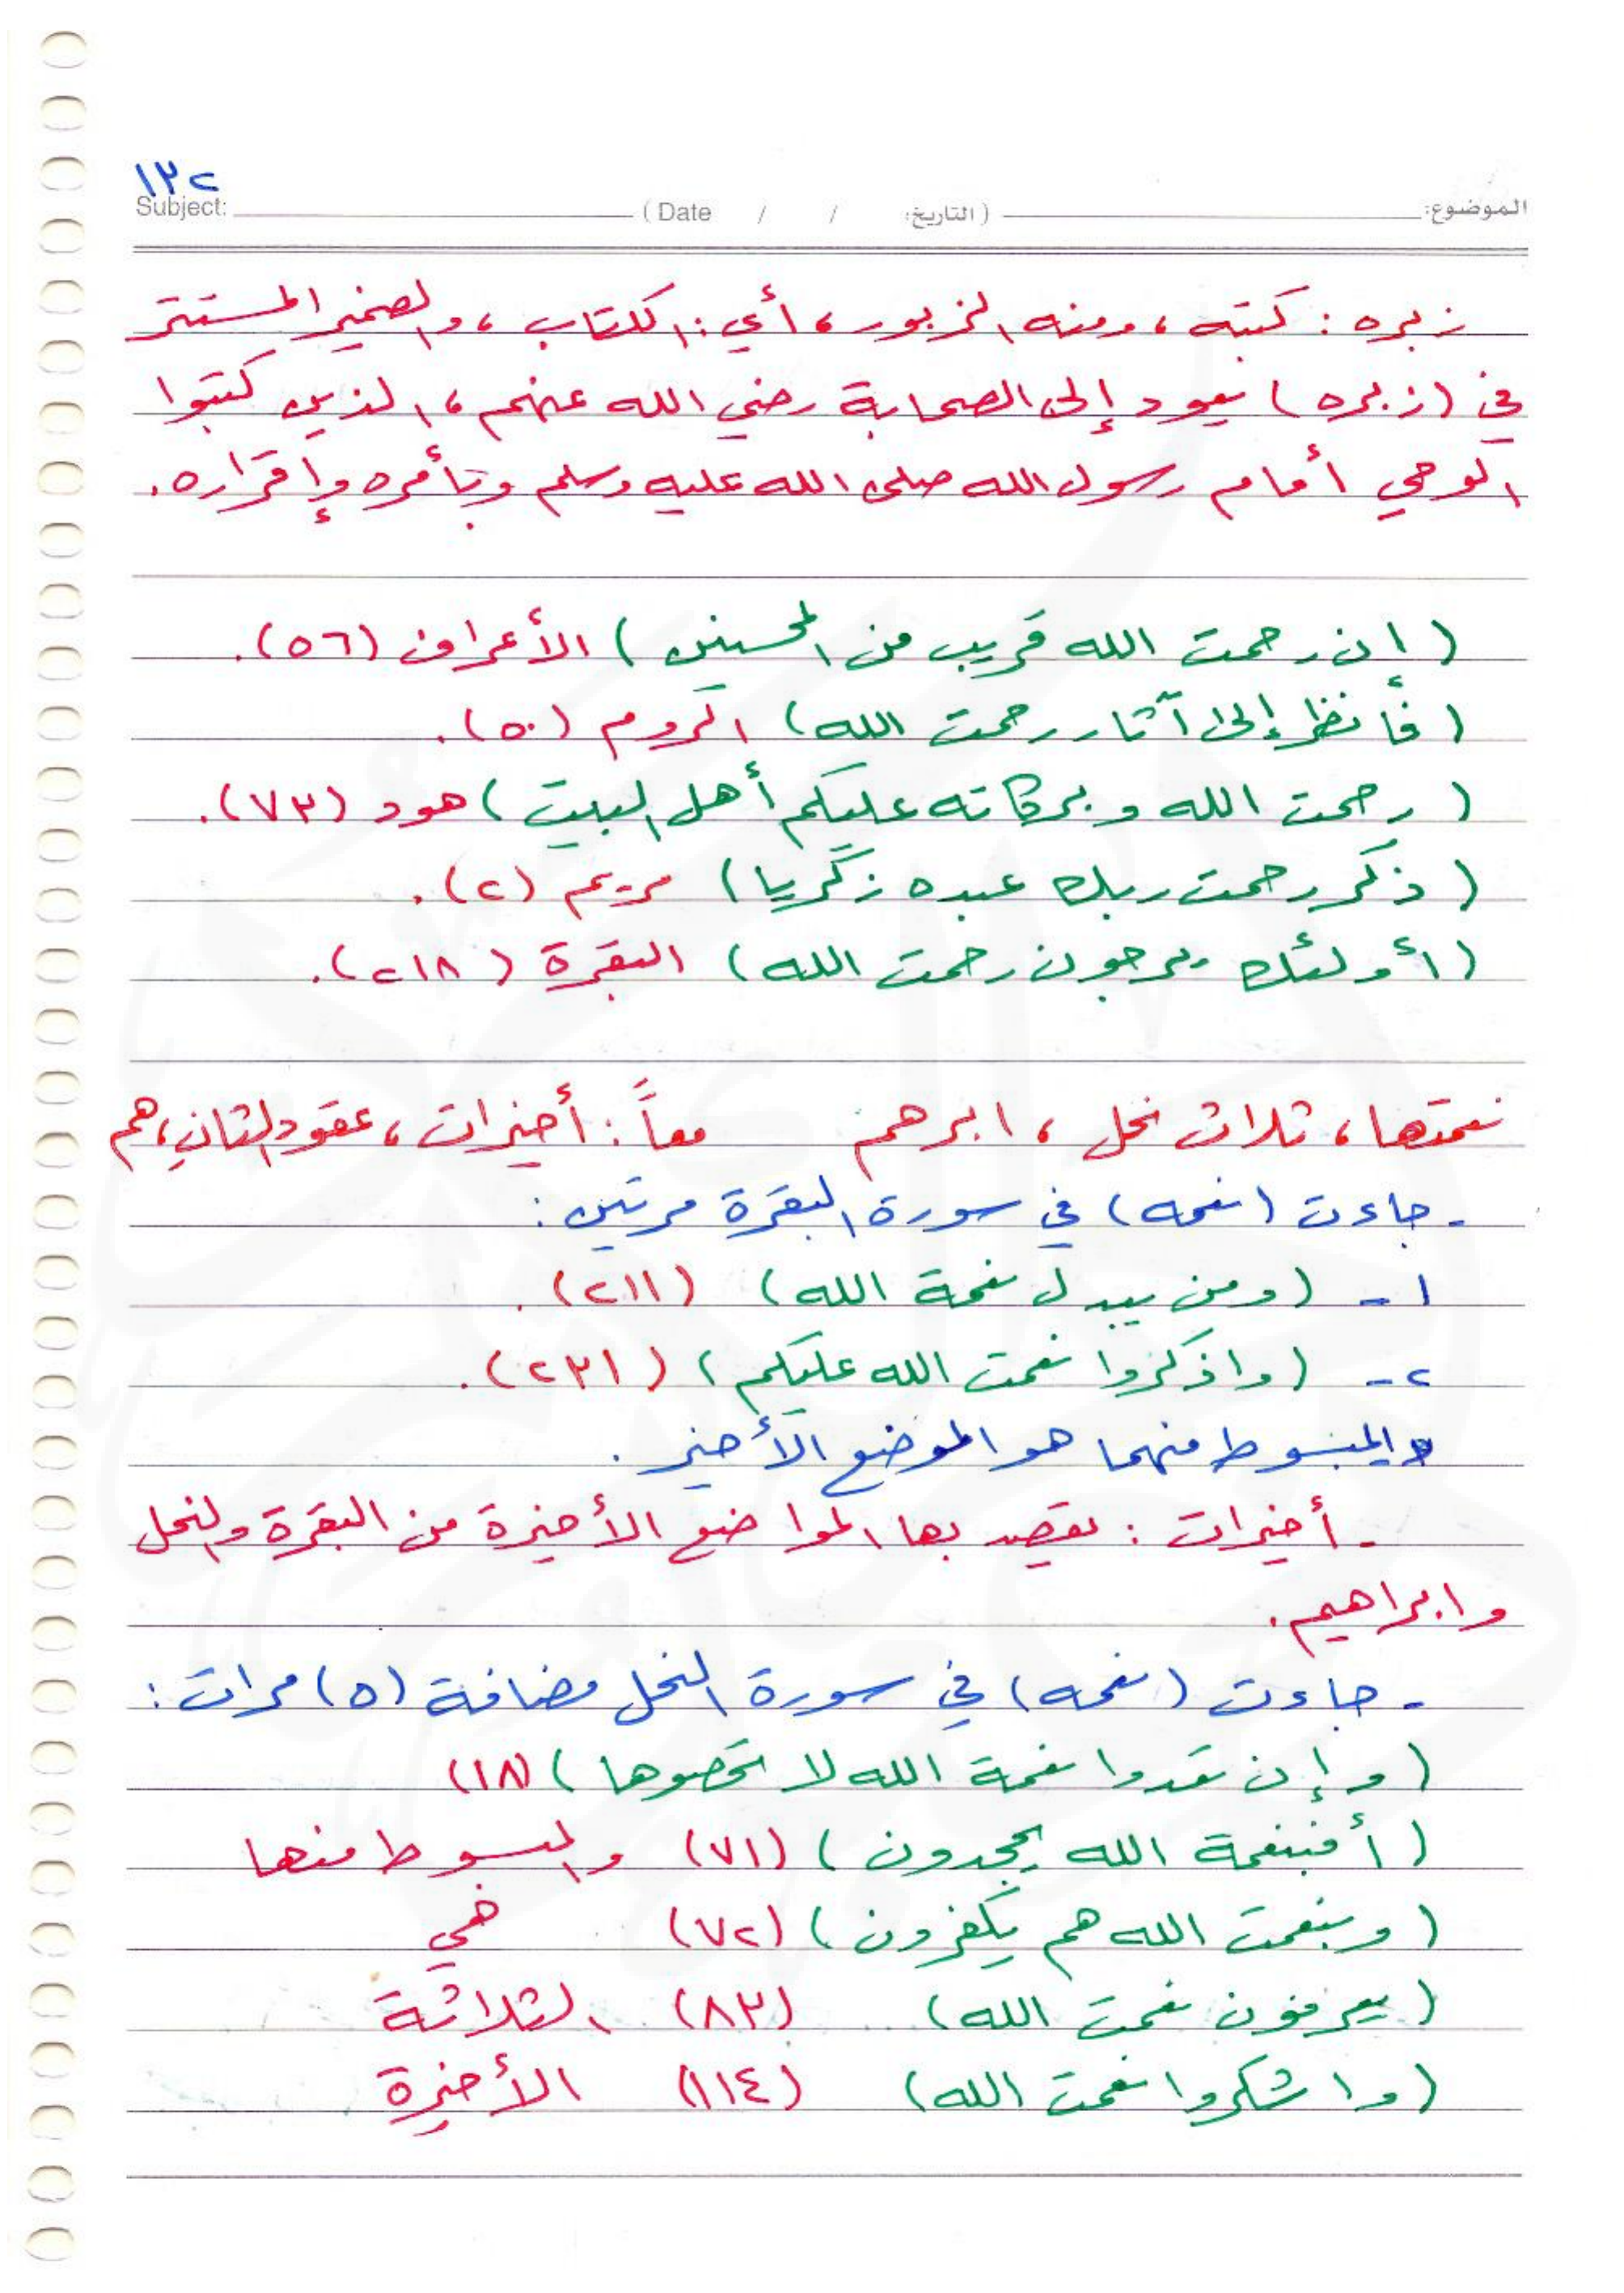 ١٣٢
Subject: ( Date / / التاريخ: ) الموضوع:
زبره : كتبه ، ومنه الزبور ، أي : الكتاب ، والضمير المستتر
في (زبره) يعود إلى الصحابة رضي الله عنهم ، الذين كتبوا
الوحي أمام رسول الله صلى الله عليه وسلم وبأمره وإقراره .
( إن رحمت الله قريب من المحسنين ) الأعراف (٥٦) .
( فأنظر إلى آثار رحمت الله ) الروم (٥٠) .
( رحمت الله وبركاته عليكم أهل البيت ) هود (٧٣) .
( ذكر رحمت ربك عبده زكريا ) مريم (٢) .
( أولئك يرجون رحمت الله ) البقرة (٢١٨) .
نعمتها ، ثلاث نحل ، ابرهم معاً : أخيرات ، عقود الثانِ ، هم
- جاءت (نعمه) في سورة البقرة مرتين :
١ - ( ومن يبدل نعمة الله ) (٢١١) .
٢ - ( واذكروا نعمت الله عليكم ) (٢٣١) .
والمبسوط منهما هو الموضع الأخير .
- أخيرات : يقصد بها المواضع الأخيرة من البقرة والنحل
وابراهيم .
- جاءت (نعمه) في سورة النحل مضافة (٥) مرات :
( وإن تعدوا نعمة الله لا تحصوها ) (١٨)
( أفبنعمة الله يجحدون ) (٧١) والمبسوط منها
( وبنعمت الله هم يكفرون ) (٧٢) هي
( يعرفون نعمت الله ) (٨٣) الثلاثة
( واشكروا نعمت الله ) (١١٤) الأخيرة